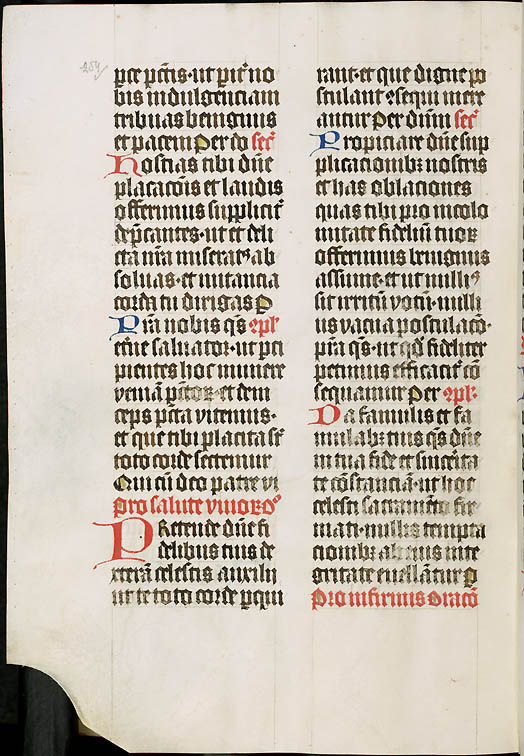 259
pce pctis · ut pit no
bis indulgenciam
tribuas benignus
et pacem Per do sec
Hostias tibi dne
placacois et laudis
offerimus supplicit
depcantes · ut et deli
cta nra miserat9 ab
soluas · et nutancia
corda tu dirigas P
Pra nobis qs 9pl
eterne saluator · ut pci
pientes hoc munere
venia pctor · et dein
ceps pcta vitemus ·
et que tibi placita st
toto corde sectemur
Qui cu deo patre vi
pro salute viuoro
PRetende dne fi
delibus tuis de
xtera celestis auxilij
ut te toto corde pqui
rant · et que digne po
stulant 9sequi mere
antur Per dum sec
Propiciare dne sup
plicacionibz nostris
et has oblaciones
quas tibi pro incolo
mitate fideliu tuor
offerimus benignus
assume · et ut nulli9
sit irritu votu · nulli
us vacua postulaco ·
pra qs · ut qd fideliter
petimus efficacit co
sequamur Per 9pl
Da famulis et fa
mulabz tuis qs dne
in tua fide et sincerita
te constancia · ut hoc
celesti sacramento fir
mati · nullis tempta
cionibz ab eius inte
gritate euellatur P
Pro infirmis oraco